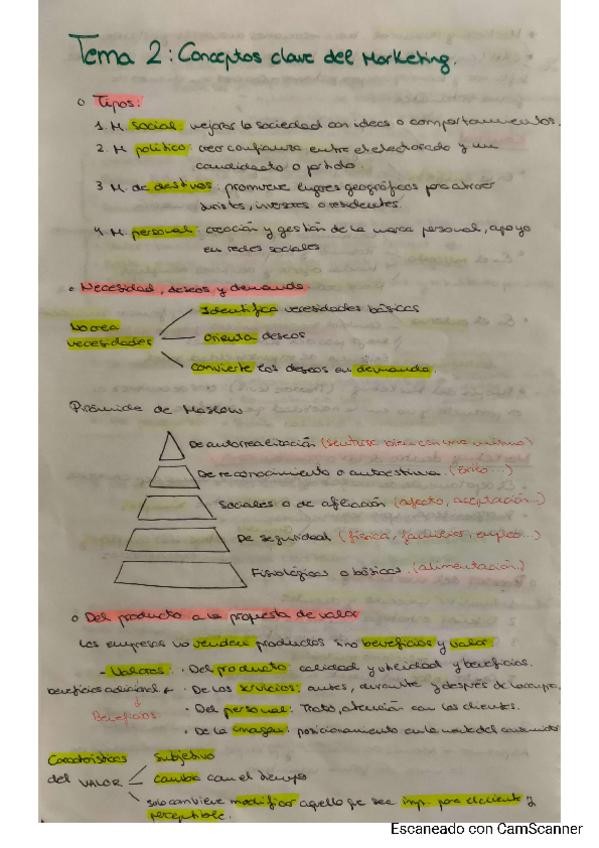 Tema 2: Conceptos clave del Marketing.
o Tipos:
1. M. social: mejorar la sociedad con ideas o comportamientos.
2. M político: crear confianza entre el electorado y un
candidato o partido.
3 M. de destinos: promueve lugares geográficos para atraer
turistas, inversores o residentes.
4. M. personal: creación y gestión de la marca personal, apoyo
en redes sociales
o Necesidad, deseos y demanda
No crea necesidades
Identifica necesidades básicas
orienta deseos
convierte los deseos en demanda.
Pirámide de Maslow
De autorrealización (sentirse bien con uno mismo)
De reconocimiento o autoestima (éxito...)
Sociales o de afiliación (afecto, aceptación...)
De seguridad (física, familiar, empleo...)
Fisiológicas o básicas (alimentación.)
o Del producto a la propuesta de valor
Las empresas no venden productos sino beneficios y valor
- Valores: · Del producto: calidad y utilidad y beneficios.
beneficios adicional ← · De los servicios: antes, durante y después de la compra.
↓
Beneficios
· Del personal: Trato, atención con los clientes.
· De la imagen: posicionamiento en la mente del consumidor
Características
del VALOR
Subjetivo
Cambia con el tiempo
solo conviene modificar aquello q se sea imp. para el cliente y
perceptible.
Escaneado con CamScanner